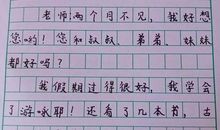 老师：两个月不见，我好想
您哟！您和叔叔、弟弟、妹妹
都好吗？
我假期过得很好，我学会
了游泳耶！还看了几本书，古